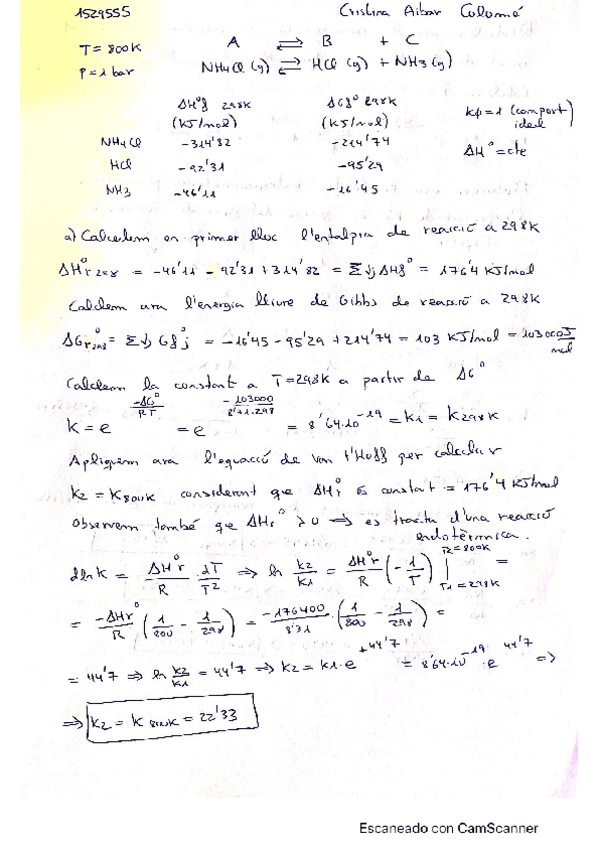 1529555 Cristina Aibar Colomé
T = 800K A ⇌ B + C
P = 1 bar NH4Cl (g) ⇌ HCl (g) + NH3 (g)
ΔH°f 298K ΔGf° 298K Kφ=1 (comport
(KJ/mol) (KJ/mol) ideal)
NH4Cl -314'82 -214'74 ΔH° = cte
HCl -92'31 -95'29
NH3 -46'11 -16'45
a) Calculem en primer lloc l'entalpia de reacció a 298K
ΔH°r 298 = -46'11 - 92'31 + 314'82 = Σνj ΔHf° = 176'4 KJ/mol
Calculem ara l'energia lliure de Gibbs de reacció a 298K
ΔGr298° = Σνj Gf°j = -16'45 - 95'29 + 214'74 = 103 KJ/mol = 103000 J/mol
Calculem la constant a T=298K a partir de ΔG°
K = e^(-ΔG°/RT) = e^(-103000/8'31·298) = 8'64·10^-19 = K1 = K298K
Apliquem ara l'equació de van t'Hoff per calcular
K2 = K800K considerant que ΔHr° és constant = 176'4 KJ/mol
Observem també que ΔHr° > 0 ⇒ es tracta d'una reacció
endotèrmica.
dlnK = ΔH°r/R · dT/T² ⇒ ln K2/K1 = ΔH°r/R (-1/T) | T2=800K T1=298K =
= -ΔHr°/R (1/800 - 1/298) = -176400/8'31 · (1/800 - 1/298) =
= 44'7 ⇒ ln K2/K1 = 44'7 ⇒ K2 = K1·e^+44'7 = 8'64·10^-19 · e^44'7 ⇒
⇒ K2 = K 800K = 22'33
Escaneado con CamScanner